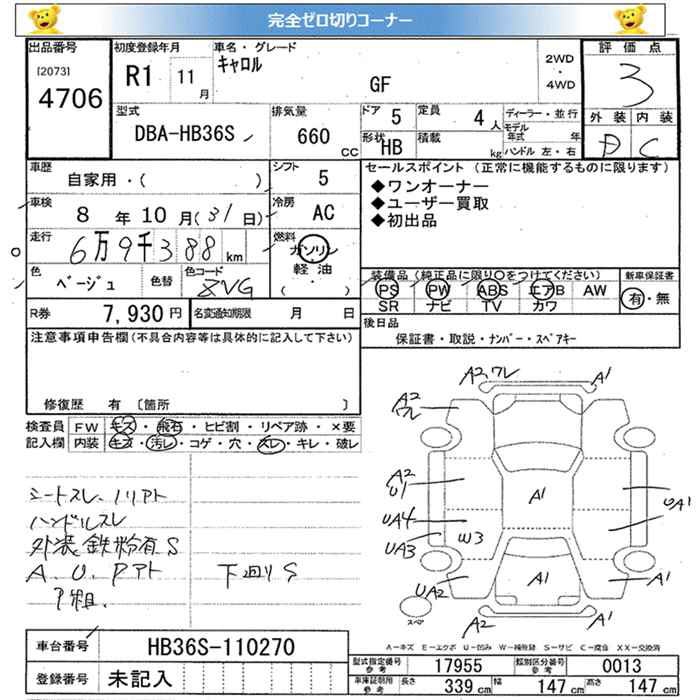 完全ゼロ切りコーナー
出品番号
[2073]
4706
初度登録年月
R1 11 月
車名・グレード
キャロル
GF
2WD
・
4WD
評価点
3
外装 内装
D C
型式
DBA-HB36S
排気量
660 CC
ドア 5
定員 4 人
形状 HB
積載 kg
ディーラー・並行
モデル年式 年
ハンドル 左・右
車歴
自家用・( )
シフト
5
車検
8 年 10 月 (31日)
冷房
AC
走行
6万9千388 km
燃料
ガソリン
軽油
( ・ )
色
ベージュ
色替
色コード
ZVG
セールスポイント (正常に機能するものに限ります)
◆ワンオーナー
◆ユーザー買取
◆初出品
装備品 (純正品に限り○をつけてください)
PS PW ABS エアB AW
SR ナビ TV カワ
新車保証書
有・無
R券
7,930円
名変通知期限 月 日
後日品
保証書・取説・ナンバー・スペアキー
注意事項申告欄 (不具合内容等は具体的に記入して下さい)
修復歴 有 〔箇所 〕
検査員記入欄
FW キズ・飛石・ヒビ割・リペア跡・×要
内装 キズ・汚レ・コゲ・穴・スレ・キレ・破レ
シートスレ、ノリアト
ハンドルスレ
外装 鉄粉有S
A、U、Pアト
P粗.
下廻りS
A2,ワレ A1
A2
ワレ A1
A2
U1 A1 UA1
UA4
UA3 W3
UA2 A1 A1
A2 A1
スペア
A-キズ E-エクボ U-凹み W-補修跡 S-サビ C-腐食 XX-交換済
車台番号
HB36S-110270
登録番号
未記入
型式指定番号 参考 17955
類別区分番号 参考 0013
車庫証明用 参考 長さ 339 cm 幅 147 cm 高さ 147 cm